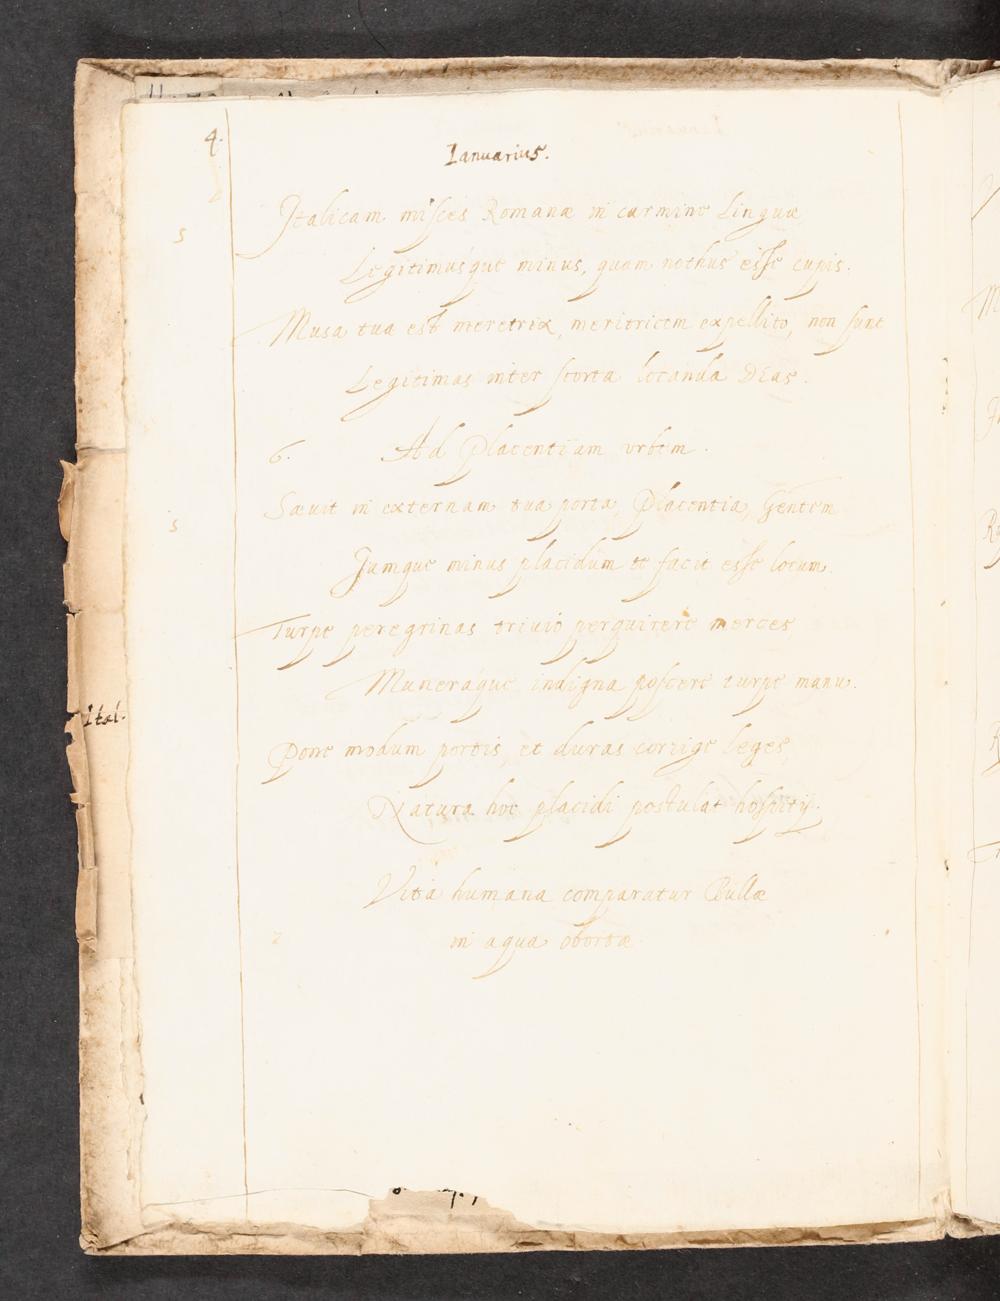 4.
Ianuarius.
Italicam misces Romanæ in carmine Linguæ
s
Legitimusque minus, quam nothus esse cupis.
Musa tua est meretrix, meritricem expellito, non sunt
Legitimas inter scorta locanda DEas.
6. Ad Placentiam vrbem.
Sæuit in externam tua porta, Placentia, Gentem
s
Iamque minus placidum te facit esse locum.
Turpe peregrinas triuio perquirere merces
Muneráque indigna poscere turpe manu.
Ital.
Pone modum portis, et duras corrige leges,
Natura hoc placidi postulat hospitij.
Vita humana comparatur Bullæ
in aqua obortæ